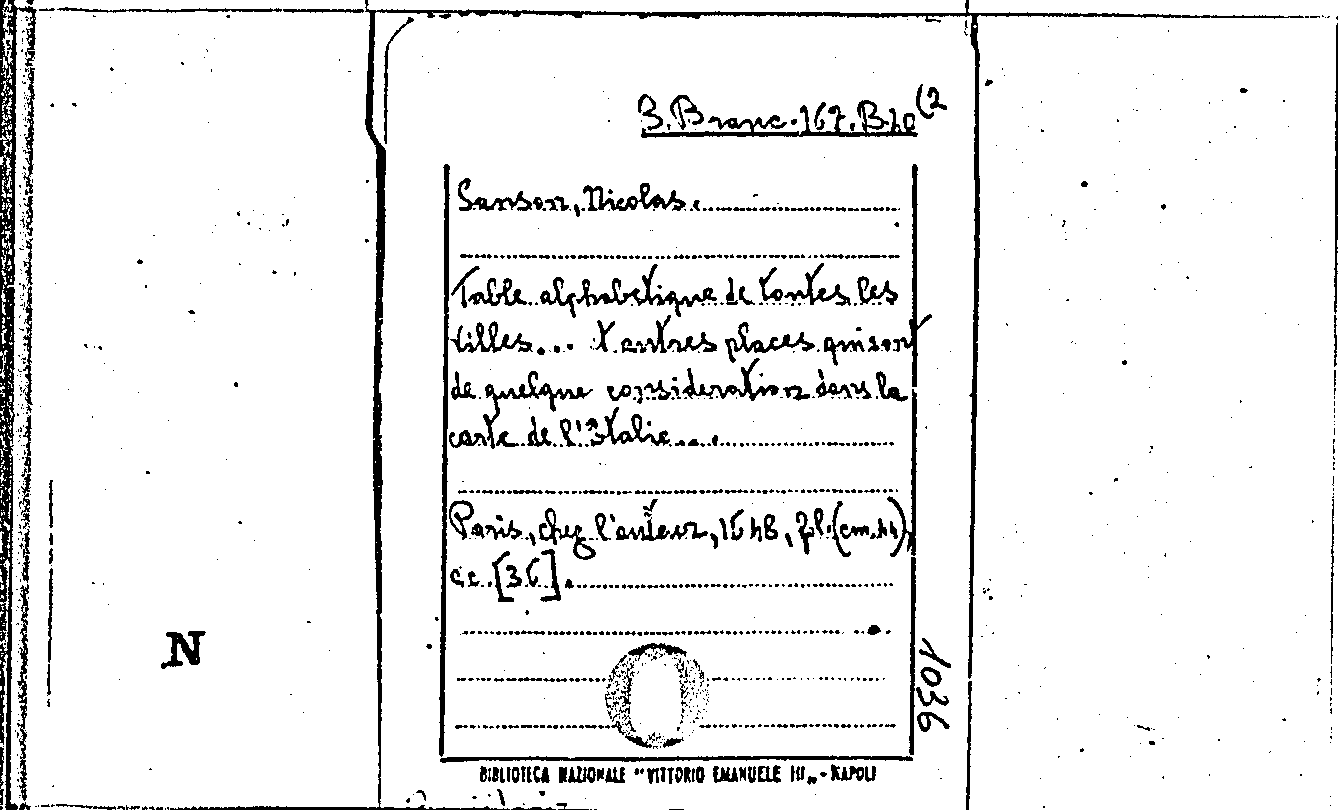 B. Branc. 167. B 20 (2
Sanson, Nicolas.
Table alphabetique de toutes les
villes... & autres places qui sont
de quelque consideration dans la
carte de l'Italie...
Paris, chez l'auteur, 1648, fol. (cm. 44),
cc. [36].
N
1036
BIBLIOTECA NAZIONALE "VITTORIO EMANUELE III„ - NAPOLI